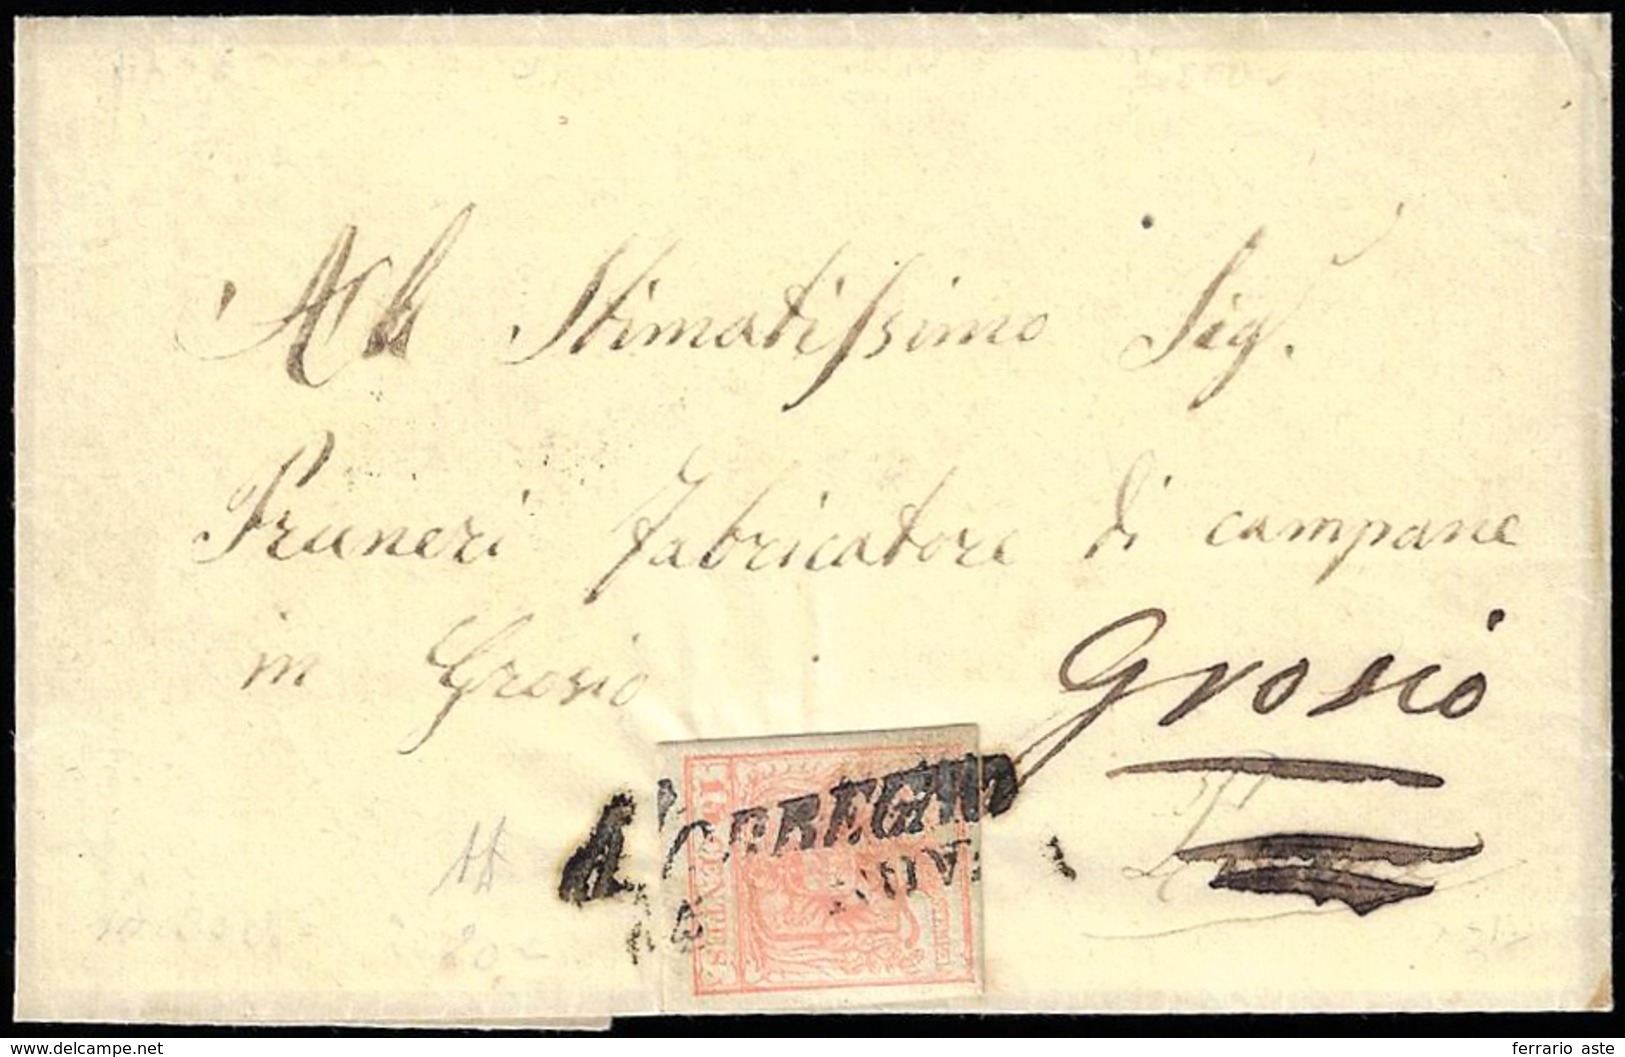 All Stimatissimo Sigr.
Pruneri fabricatore di campane
in Grosio
Grosio
15 CENTES
NOVE
www.delcampe.net
ferrario aste